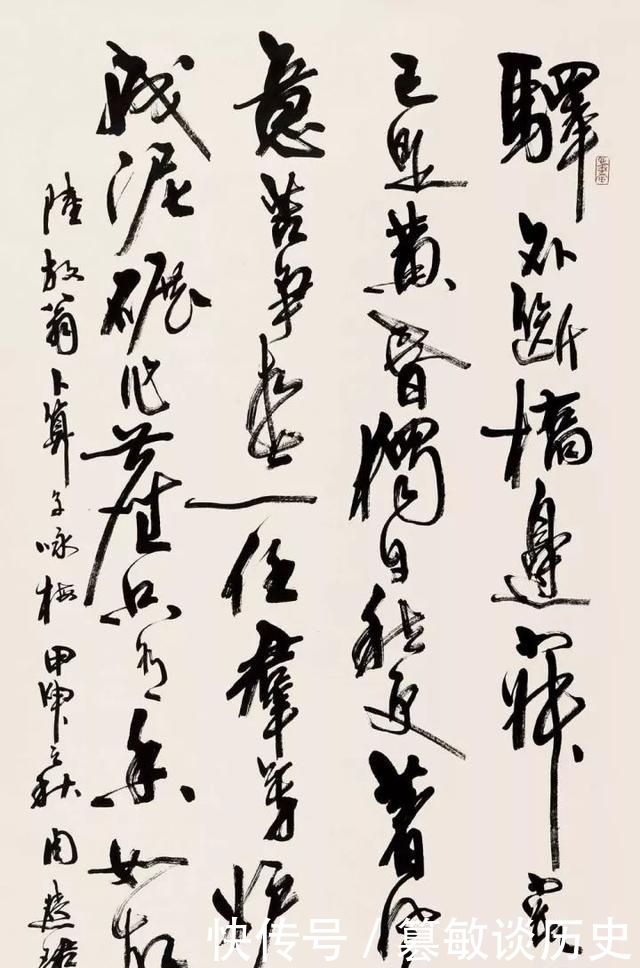 驛外斷橋邊寂寞
已是黃昏獨自愁更著風
意苦爭春一任羣芳妒
成泥碾作塵只有香如故
陸放翁卜算子咏梅 甲申之秋 周慧珺
快传号 / 篡敏谈历史